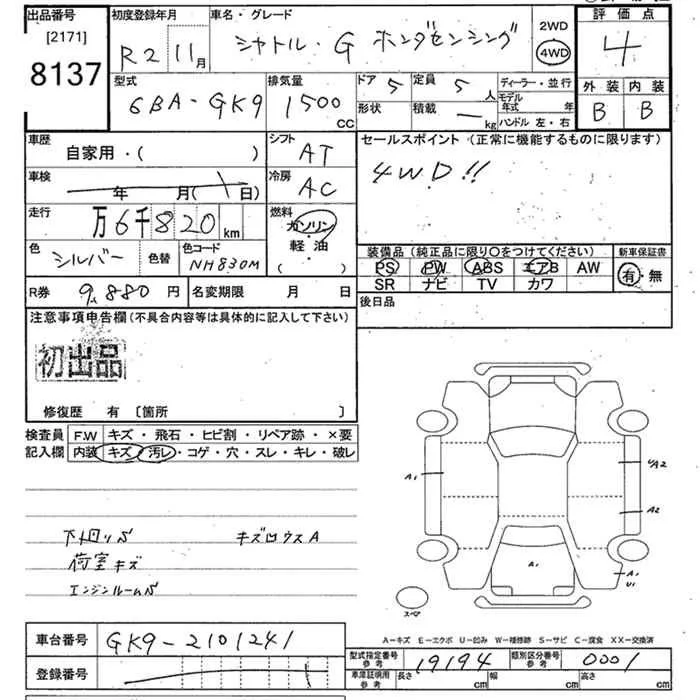 出品番号 初度登録年月 車名・グレード 2WD 評価点
[2171]
8137 R2 11月 シャトル・G ホンダセンシング 4WD 4
型式 排気量 ドア 5 定員 5人 ディーラー・並行 外装 内装
6BA-GK9 1500cc 形状 積載 ー kg モデル年式 年 B B
ハンドル 左・右
車歴 シフト セールスポイント (正常に機能するものに限ります)
自家用・( ) AT 4WD!!
車検 冷房
年 月( 日) AC
走行 燃料
万6千820km ガソリン
色 色替 色コード 軽油 装備品 (純正品に限り○をつけてください) 新車保証書
シルバー NH830M ( ) PS PW ABS エアB AW 有・無
R券 9,880円 名変期限 月 日 SR ナビ TV カワ
注意事項申告欄 (不具合内容等は具体的に記入して下さい) 後日品
初出品
修復歴 有 [箇所 ]
検査員 F.W キズ・飛石・ヒビ割・リペア跡・×要
記入欄 内装 キズ・汚レ・コゲ・穴・スレ・キレ・破レ
A1 A2
A2
下回りS キズ凹ウスA
荷室キズ
エンジンルームS
A1 A1
U1
スペア
A-キズ E-エクボ U-凹み W-補修跡 S-サビ C-腐食 XX-交換済
車台番号 GK9-2101241
登録番号
型式指定番号 参考 19194 類別区分番号 参考 0001
車庫証明用 参考 長さ cm 幅 cm 高さ cm